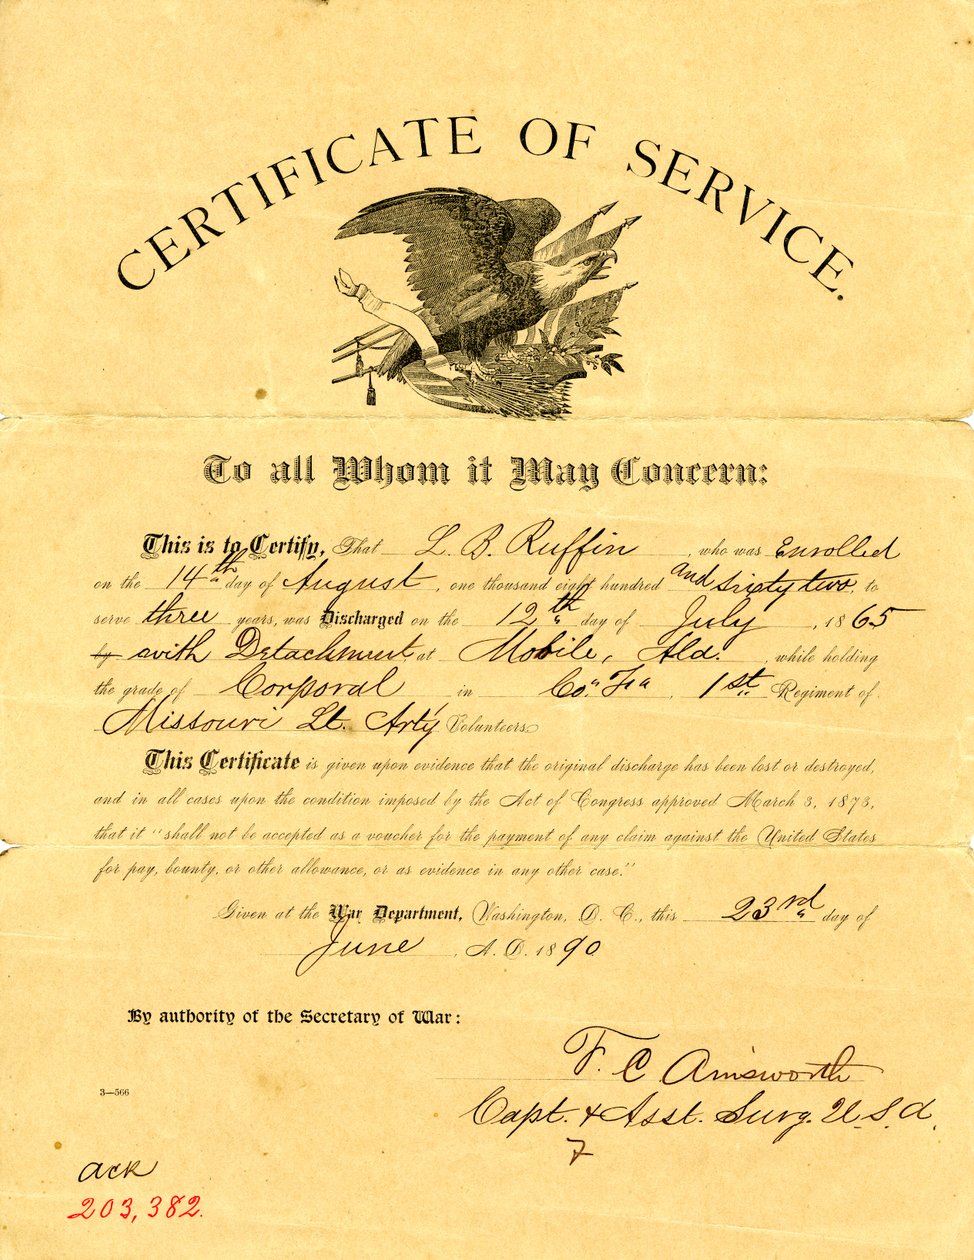 CERTIFICATE OF SERVICE.
To all Whom it May Concern:
This is to Certify, That L. B. Ruffin, who was Enrolled
on the 14th day of August, one thousand eight hundred and Sixty two, to
serve three years, was Discharged on the 12th day of July, 1865
by with Detachment at Mobile, Ala. while holding
the grade of Corporal in Co. "F", 1st Regiment of
Missouri Lt. Art'y Volunteers
This Certificate is given upon evidence that the original discharge has been lost or destroyed,
and in all cases upon the condition imposed by the Act of Congress approved March 3, 1873,
that it "shall not be accepted as a voucher for the payment of any claim against the United States
for pay, bounty, or other allowance, or as evidence in any other case."
Given at the War Department, Washington, D. C., this 23rd day of
June, A. D. 1890
By authority of the Secretary of War:
F. C. Ainsworth
3—566
Capt. & Asst. Surg. U.S.A.
ack
203,382.